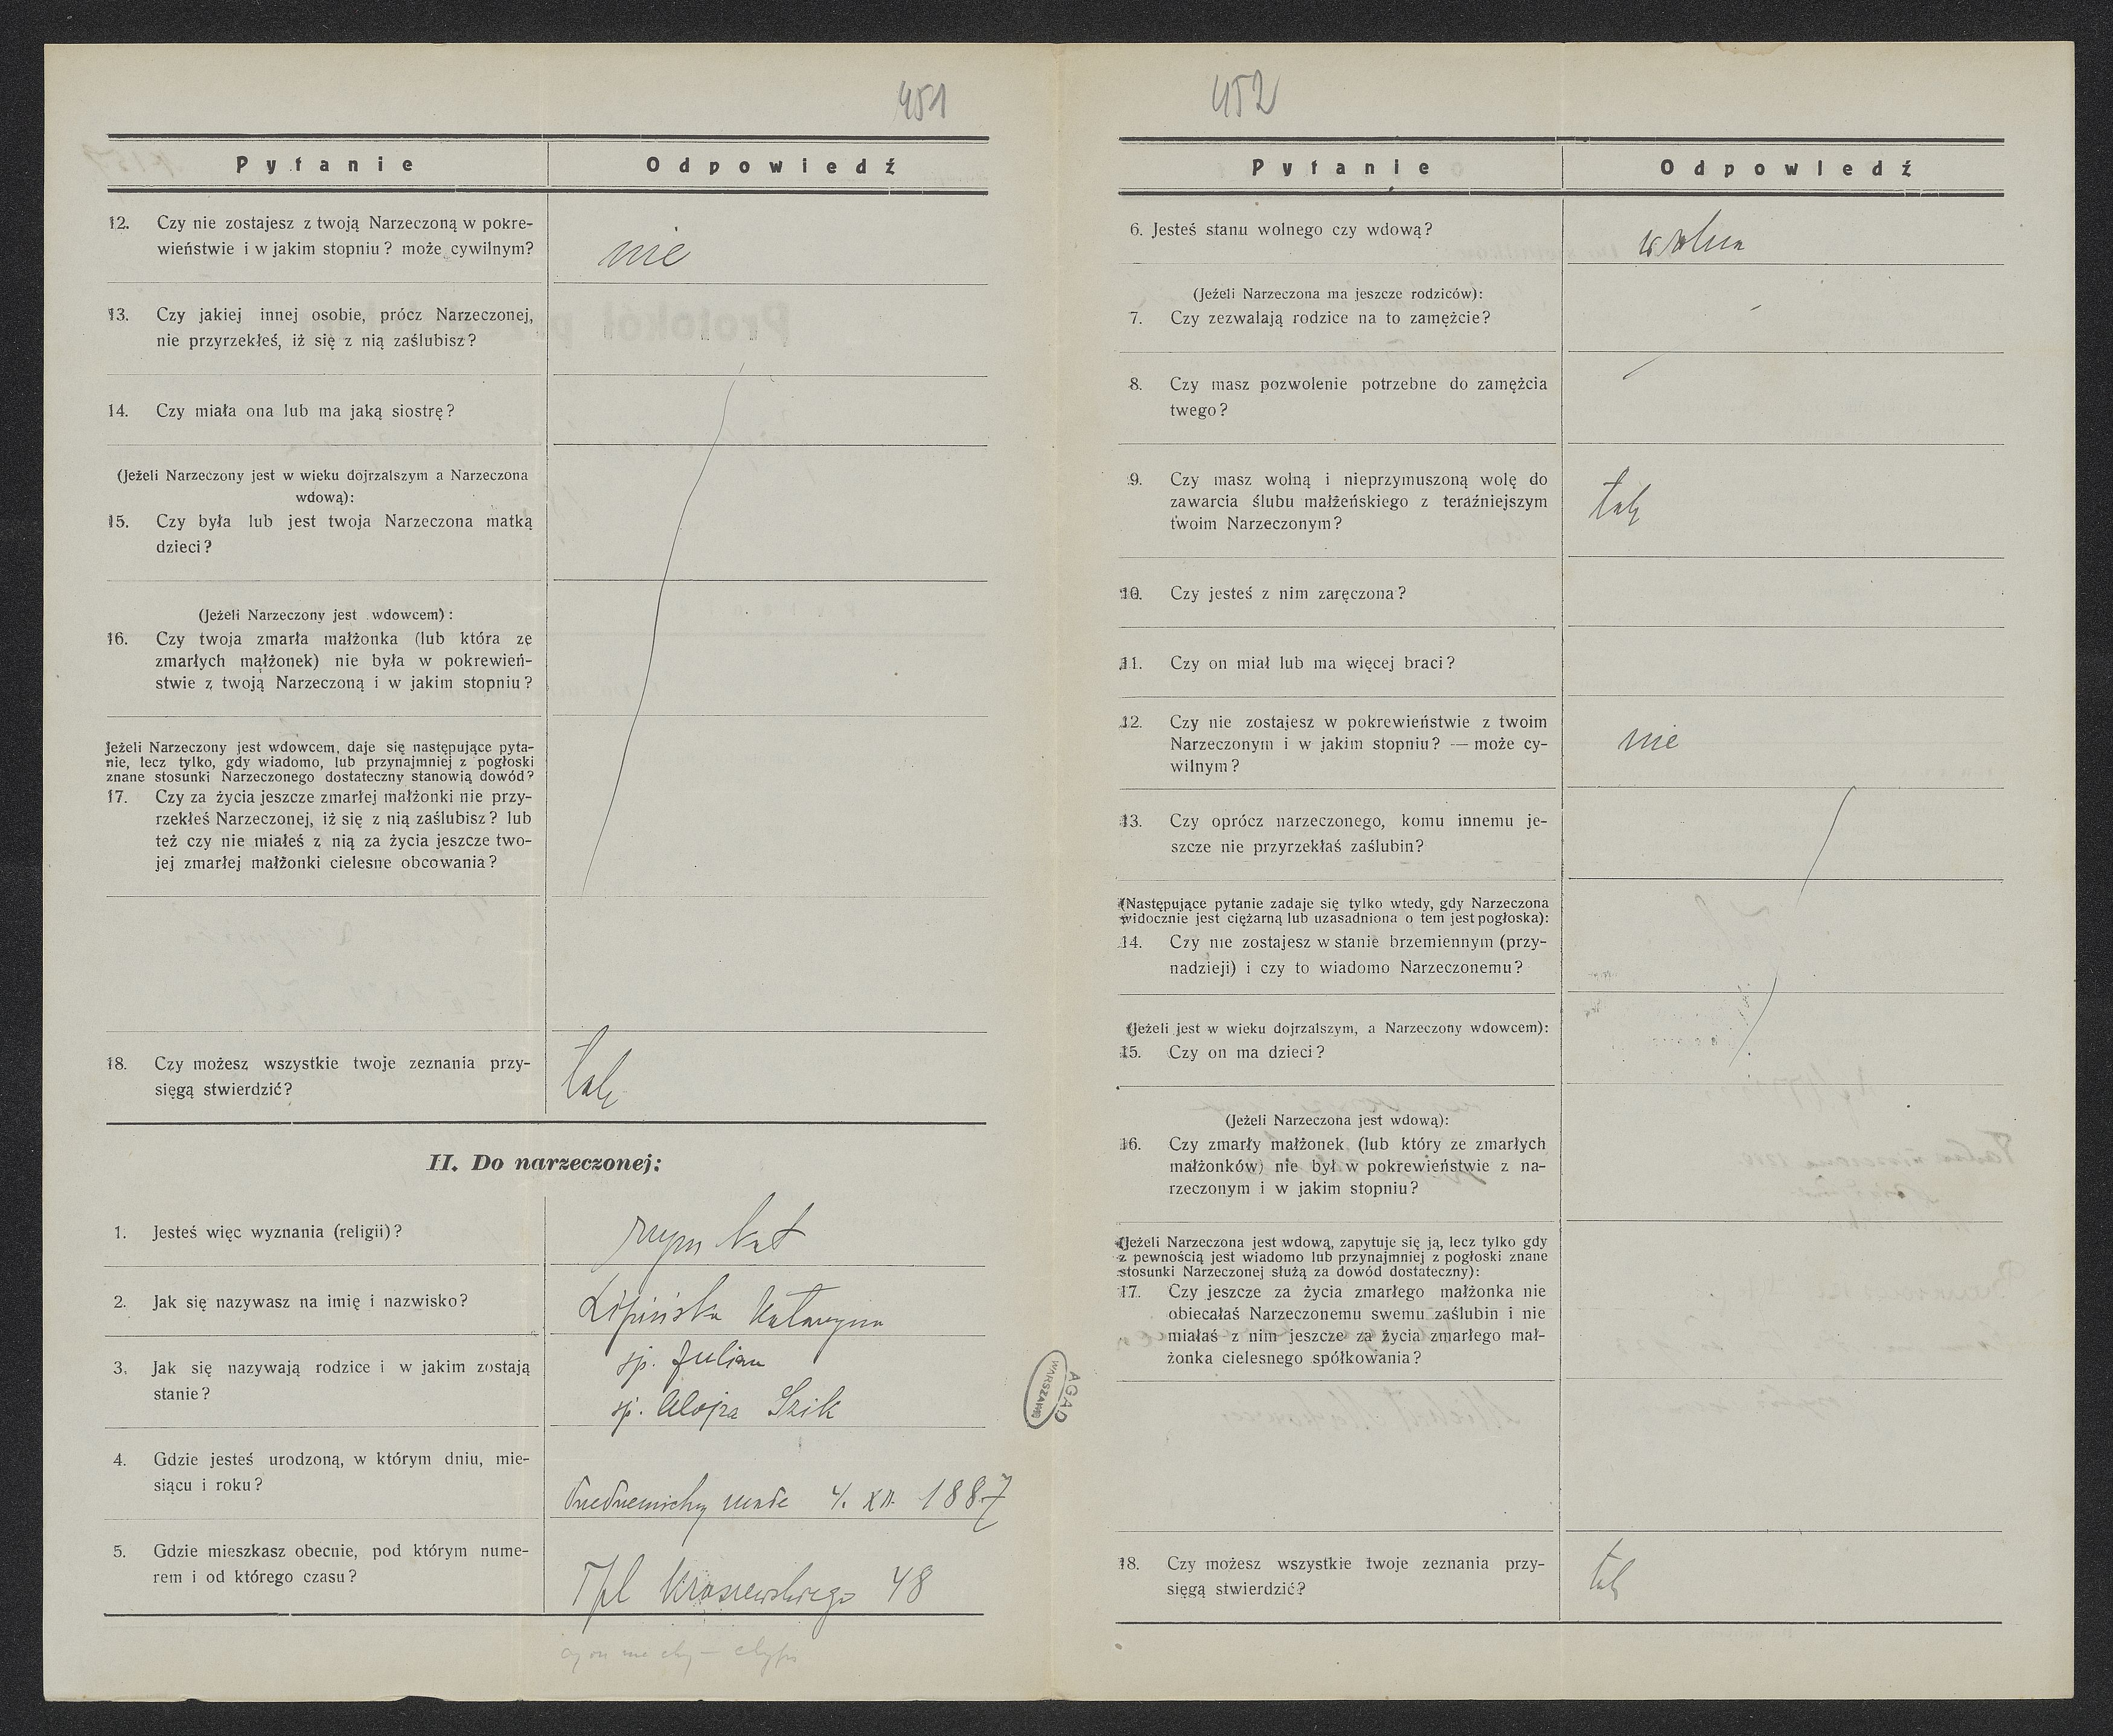 451
Pytanie Odpowiedź
12. Czy nie zostajesz z twoją Narzeczoną w pokre-
wieństwie i w jakim stopniu? może cywilnym?
nie
13. Czy jakiej innej osobie, prócz Narzeczonej,
nie przyrzekłeś, iż się z nią zaślubisz?
14. Czy miała ona lub ma jaką siostrę?
(Jeżeli Narzeczony jest w wieku dojrzalszym a Narzeczona
wdową):
15. Czy była lub jest twoja Narzeczona matką
dzieci?
(Jeżeli Narzeczony jest wdowcem):
16. Czy twoja zmarła małżonka (lub która ze
zmarłych małżonek) nie była w pokrewień-
stwie z twoją Narzeczoną i w jakim stopniu?
Jeżeli Narzeczony jest wdowcem, daje się następujące pyta-
nie, lecz tylko, gdy wiadomo, lub przynajmniej z pogłoski
znane stosunki Narzeczonego dostateczny stanowią dowód?
17. Czy za życia jeszcze zmarłej małżonki nie przy-
rzekłeś Narzeczonej, iż się z nią zaślubisz? lub
też czy nie miałeś z nią za życia jeszcze two-
jej zmarłej małżonki cielesne obcowania?
18. Czy możesz wszystkie twoje zeznania przy-
sięgą stwierdzić?
tak
II. Do narzeczonej:
1. Jesteś więc wyznania (religii)?
rzym kat
2. Jak się nazywasz na imię i nazwisko?
Lipińska Katarzyna
3. Jak się nazywają rodzice i w jakim zostają
stanie?
śp. Julian
śp. Alojza Szik
4. Gdzie jesteś urodzoną, w którym dniu, mie-
siącu i roku?
małe 4. XII. 1887
5. Gdzie mieszkasz obecnie, pod którym nume-
rem i od którego czasu?
Tpl Kraszewskiego 48
AGAD
WARSZAWA
452
Pytanie Odpowiedź
6. Jesteś stanu wolnego czy wdową?
wolna
(Jeżeli Narzeczona ma jeszcze rodziców):
7. Czy zezwalają rodzice na to zamężcie?
8. Czy masz pozwolenie potrzebne do zamężcia
twego?
9. Czy masz wolną i nieprzymuszoną wolę do
zawarcia ślubu małżeńskiego z teraźniejszym
twoim Narzeczonym?
tak
10. Czy jesteś z nim zaręczona?
11. Czy on miał lub ma więcej braci?
12. Czy nie zostajesz w pokrewieństwie z twoim
Narzeczonym i w jakim stopniu? — może cy-
wilnym?
nie
13. Czy oprócz narzeczonego, komu innemu je-
szcze nie przyrzekłaś zaślubin?
(Następujące pytanie zadaje się tylko wtedy, gdy Narzeczona
widocznie jest ciężarną lub uzasadniona o tem jest pogłoska):
14. Czy nie zostajesz w stanie brzemiennym (przy-
nadzieji) i czy to wiadomo Narzeczonemu?
(Jeżeli jest w wieku dojrzalszym, a Narzeczony wdowcem):
15. Czy on ma dzieci?
(Jeżeli Narzeczona jest wdową):
16. Czy zmarły małżonek (lub który ze zmarłych
małżonków) nie był w pokrewieństwie z na-
rzeczonym i w jakim stopniu?
(Jeżeli Narzeczona jest wdową, zapytuje się ją, lecz tylko gdy
z pewnością jest wiadomo lub przynajmniej z pogłoski znane
stosunki Narzeczonej służą za dowód dostateczny):
17. Czy jeszcze za życia zmarłego małżonka nie
obiecałaś Narzeczonemu swemu zaślubin i nie
miałaś z nim jeszcze za życia zmarłego mał-
żonka cielesnego spółkowania?
18. Czy możesz wszystkie twoje zeznania przy-
sięgą stwierdzić?
tak